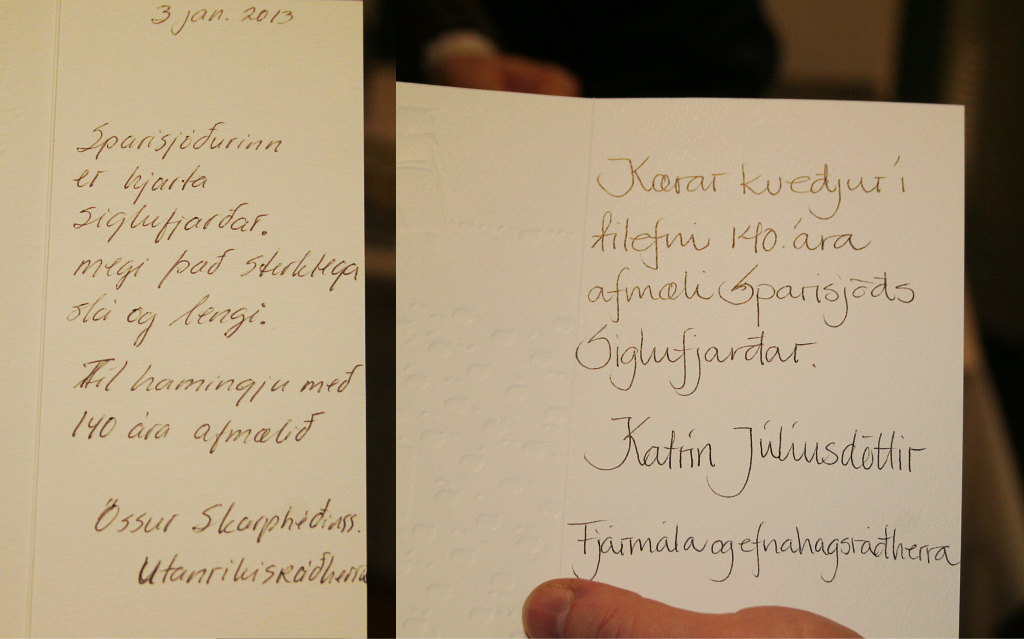 3 jan. 2013
Sparisjóðurinn
er hjarta
Siglufjarðar.
megi það sterklega
slá og lengi.
Til hamingju með
140 ára afmælið
Össur Skarphéðinss.
Utanríkisráðherra
Kærar kveðjur í
tilefni 140 ára
afmæli Sparisjóðs
Siglufjarðar.
Katrín Júlíusdóttir
Fjármála og efnahagsráðherra